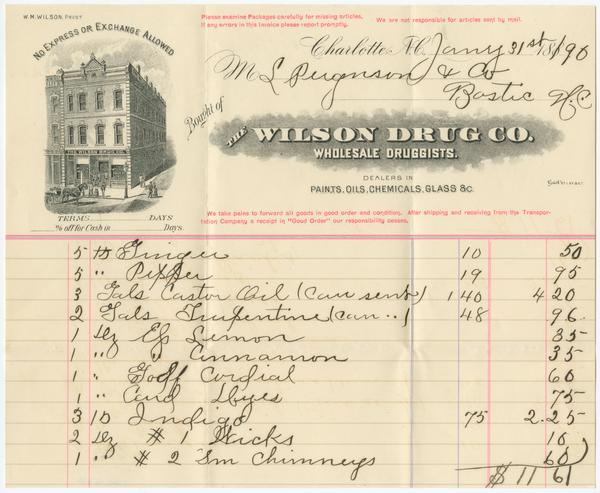 W.M.WILSON, PREST
Please examine Packages carefully for missing articles.
If any errors in this Invoice please report promptly.
We are not responsible for articles sent by mail.
NO EXPRESS OR EXCHANGE ALLOWED
Charlotte, N.C. Jany 31st 1890
M L Ferguson & Co
Bostic N.C.
Bought of
THE WILSON DRUG CO.
WHOLESALE DRUGGISTS.
DEALERS IN
PAINTS, OILS, CHEMICALS, GLASS &C.
THE WILSON DRUG CO.
TERMS DAYS
% off for Cash in Days.
We take pains to forward all goods in good order and condition. After shipping and receiving from the Transportation Company a receipt in "Good Order" our responsibility ceases.
5 lb Ginger 10 50
5 " Pepper 19 95
3 Gals Castor Oil (can sent) 1 40 4 20
2 Gals Turpentine (can ") 48 96
1 Dz Ess Lemon 35
1 " " Cinnamon 35
1 " Godf Cordial 60
1 " Card Dyes 75
3 lb Indigo 75 2.25
2 Dz # 1 Wicks 10
1 " # 2 Sm Chimneys 60
$ 11 61